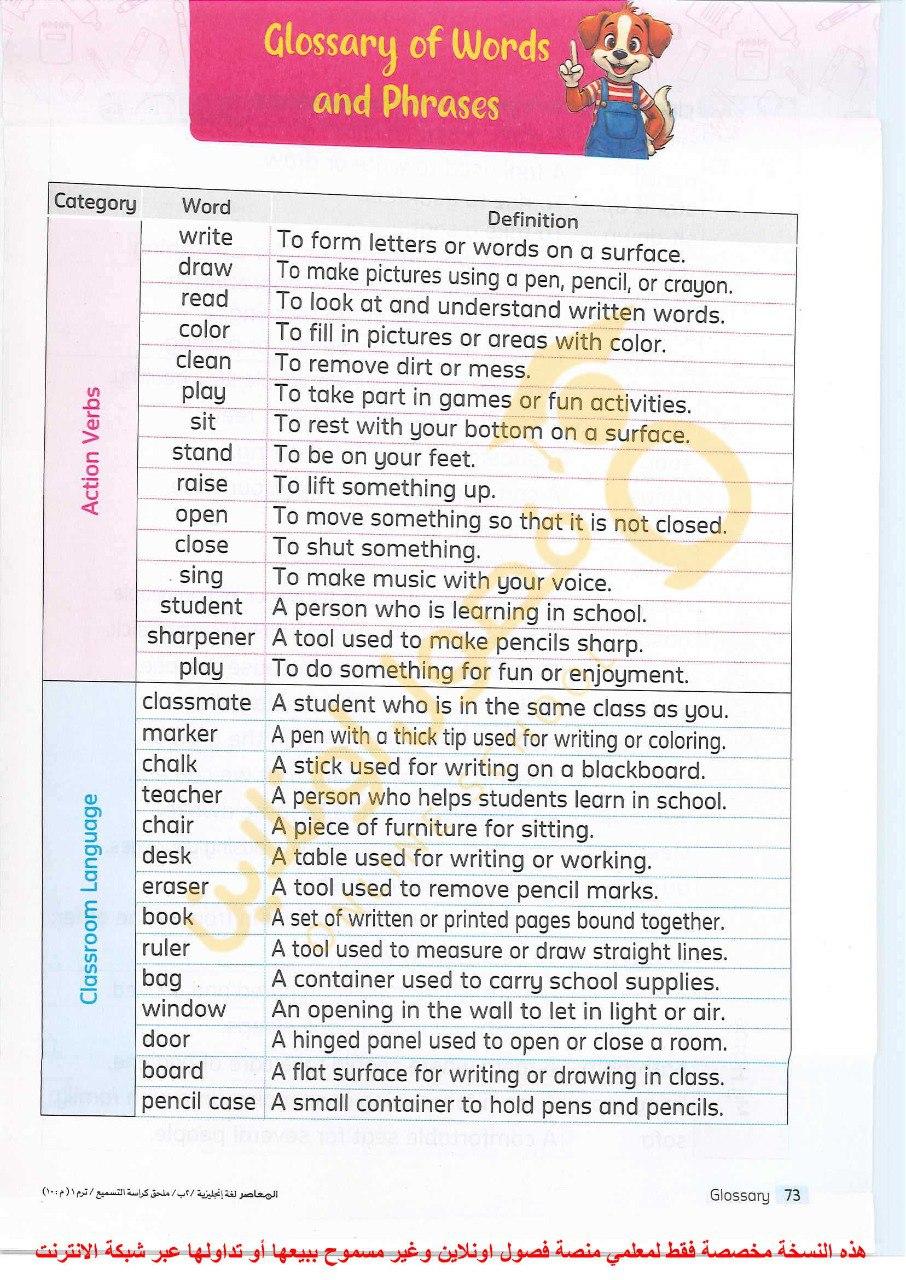 Glossary of Words
and Phrases
Category Word Definition
Action Verbs
write To form letters or words on a surface.
draw To make pictures using a pen, pencil, or crayon.
read To look at and understand written words.
color To fill in pictures or areas with color.
clean To remove dirt or mess.
play To take part in games or fun activities.
sit To rest with your bottom on a surface.
stand To be on your feet.
raise To lift something up.
open To move something so that it is not closed.
close To shut something.
sing To make music with your voice.
student A person who is learning in school.
sharpener A tool used to make pencils sharp.
play To do something for fun or enjoyment.
Classroom Language
classmate A student who is in the same class as you.
marker A pen with a thick tip used for writing or coloring.
chalk A stick used for writing on a blackboard.
teacher A person who helps students learn in school.
chair A piece of furniture for sitting.
desk A table used for writing or working.
eraser A tool used to remove pencil marks.
book A set of written or printed pages bound together.
ruler A tool used to measure or draw straight lines.
bag A container used to carry school supplies.
window An opening in the wall to let in light or air.
door A hinged panel used to open or close a room.
board A flat surface for writing or drawing in class.
pencil case A small container to hold pens and pencils.
فصول اونلاين
ONLINE SCHOOL
المعاصر لغة إنجليزية /٢ب/ ملحق كراسة التسميع / ترم ١ (م:١٠)
Glossary 73
هذه النسخة مخصصة فقط لمعلمي منصة فصول اونلاين وغير مسموح ببيعها أو تداولها عبر شبكة الانترنت